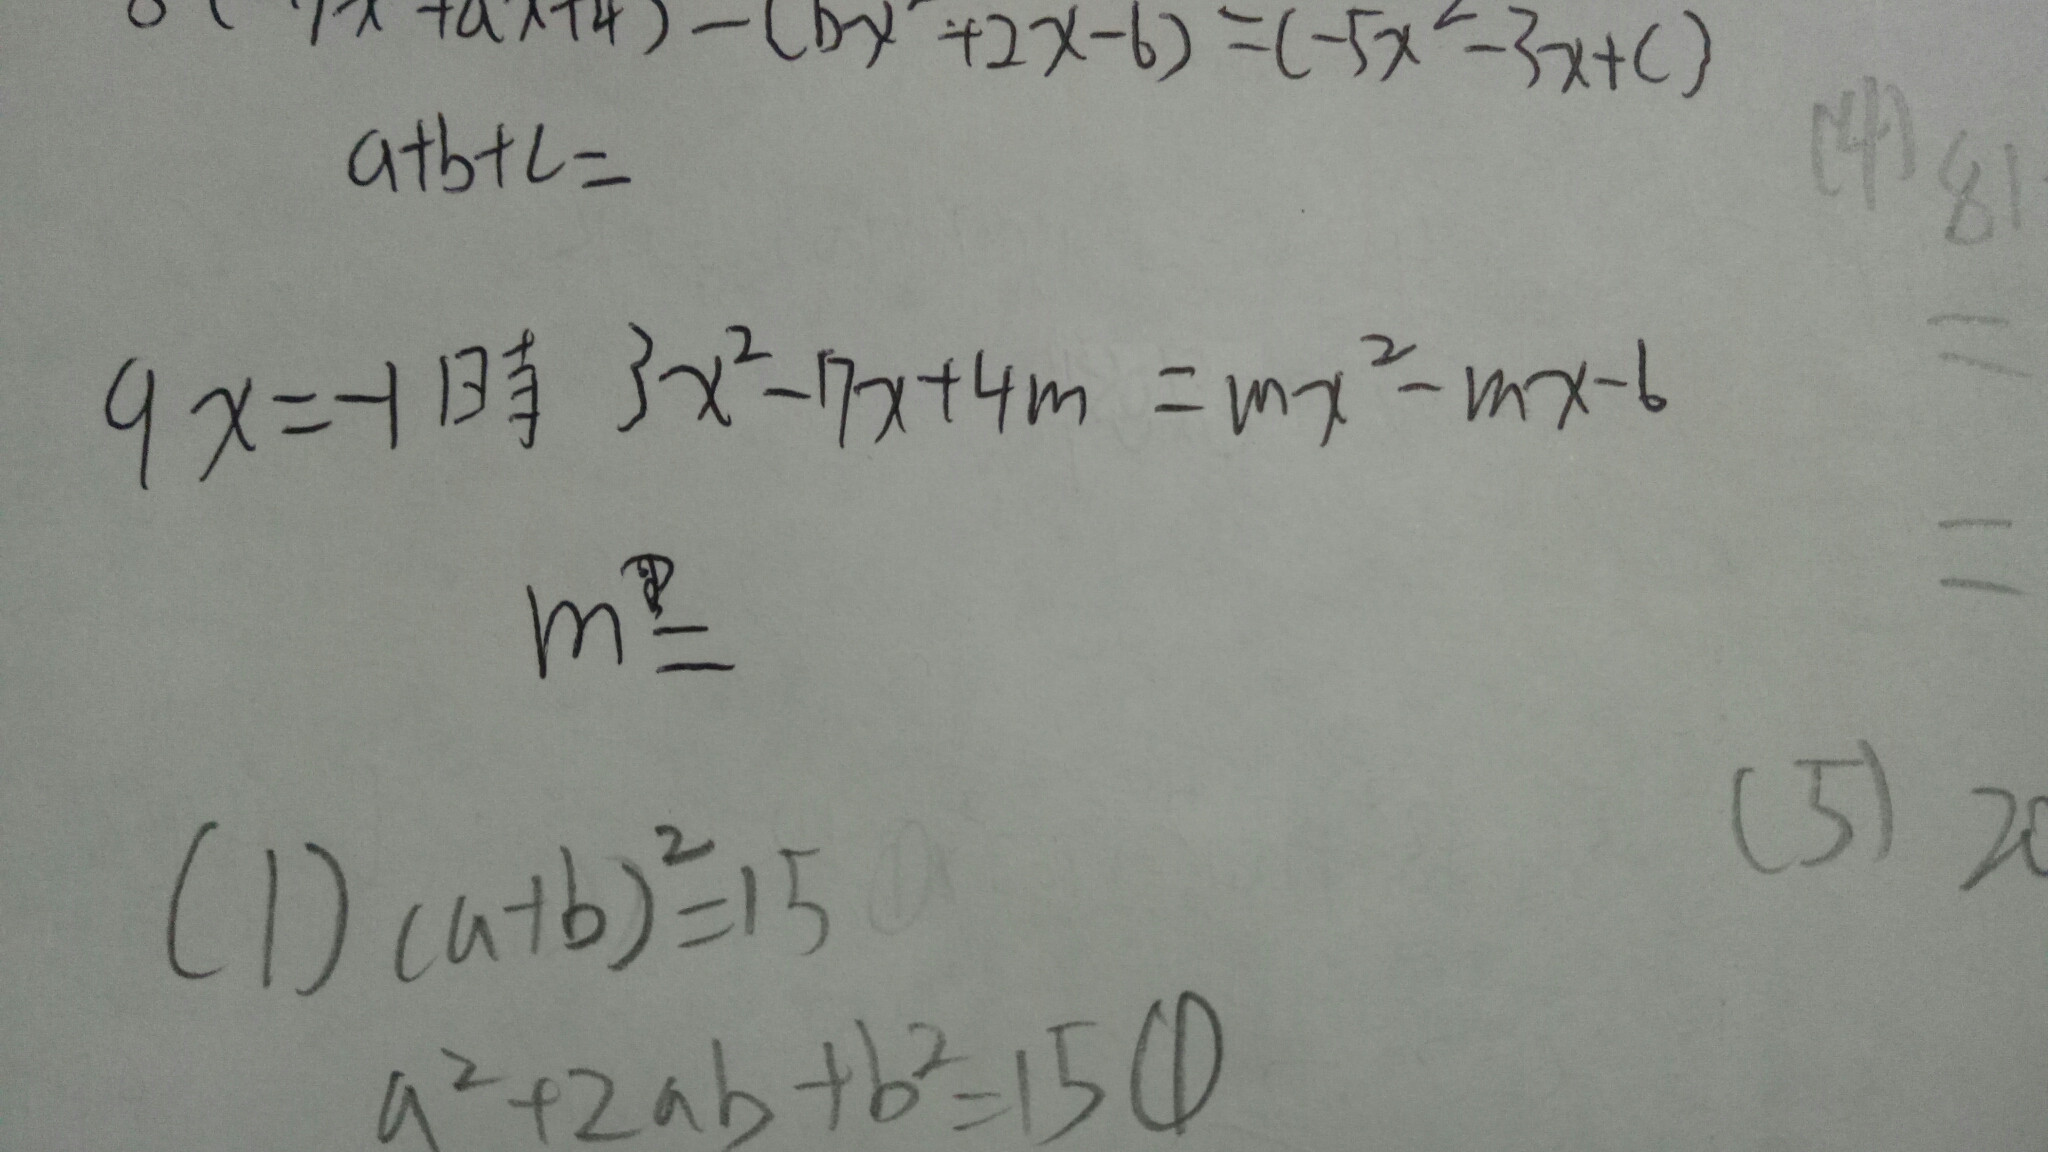 8 (-7x²+ax+4)-(bx²+2x-6)=(-5x²-3x+c)
a+b+c=
9 x=-1時 3x²-7x+4m=mx²-mx-6
m=
(1) (a+b)²=15
a²+2ab+b²=15①
(4) 81
=
=
(5) 20